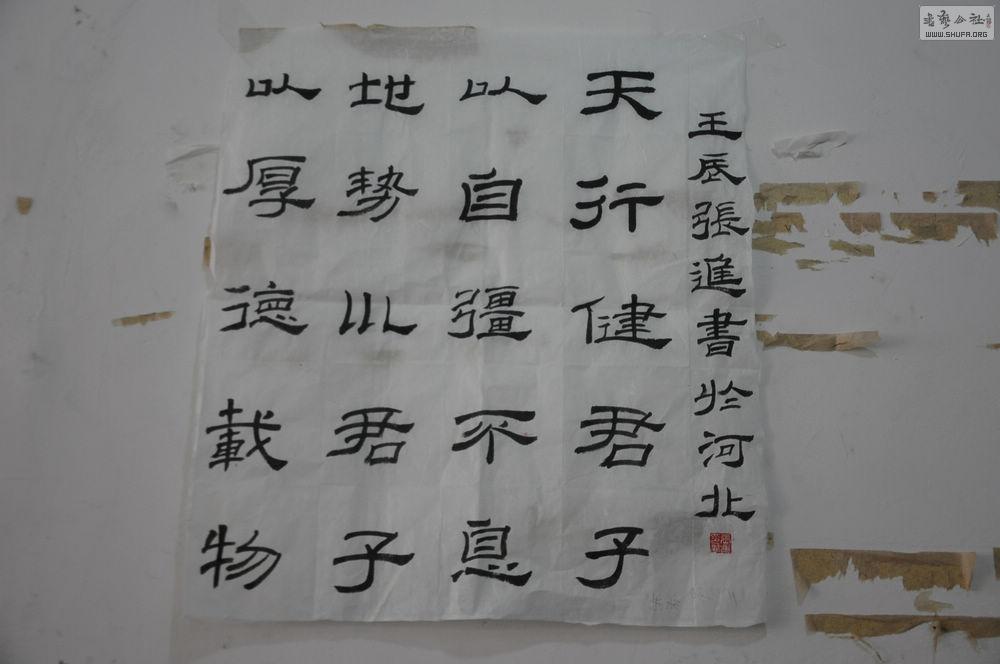 壬辰張進書於河北
天行健君子
以自彊不息
地势川君子
以厚德載物
书艺公社
WWW.SHUFA.ORG